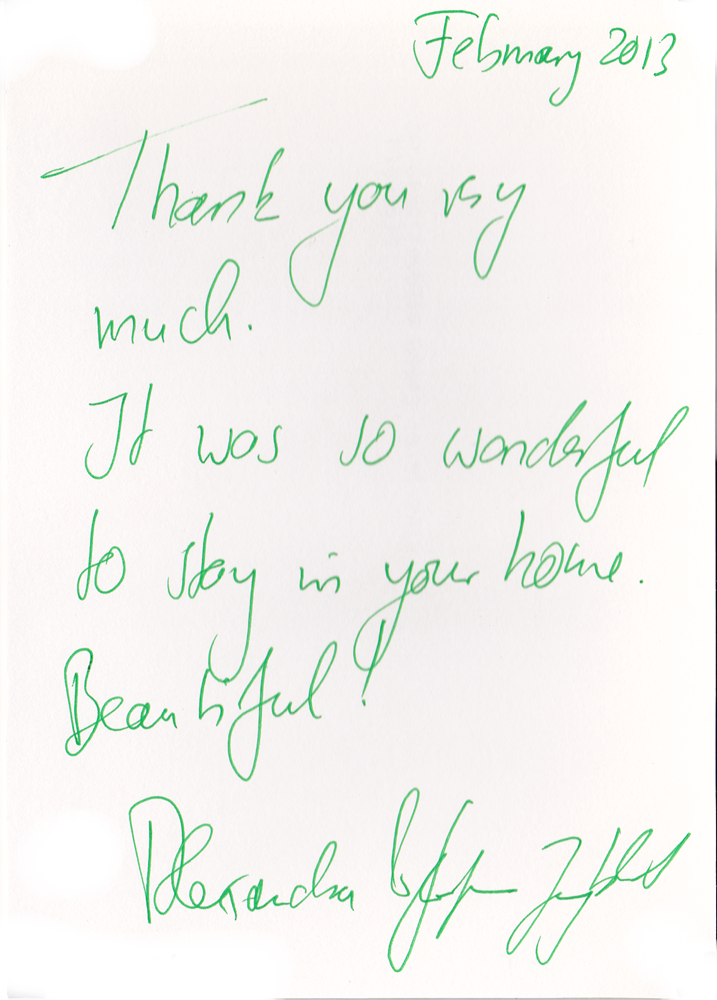 February 2013
Thank you very
much.
It was so wonderful
to stay in your home.
Beautiful!
Alexandra